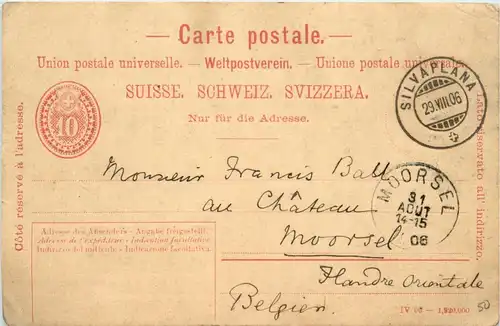 Carte postale.
Union postale universelle. — Weltpostverein. — Unione postale universale.
SUISSE. SCHWEIZ. SVIZZERA.
Nur für die Adresse.
10
SILVAPLANA
29.VIII.06
Côté réservé à l'adresse.
Lato riservato all'indirizzo.
Monsieur Francis Ball
au Château
Moorsel
MOORSEL
31
AOUT
14-15
06
Flandre Orientale
Belgien.
Adresse des Absenders - Angabe freigestellt.
Adresse de l'expéditeur - Indication facultative
Indirizzo del mittente - Indicazione facoltativa
IV 06 — 1,920,000
50